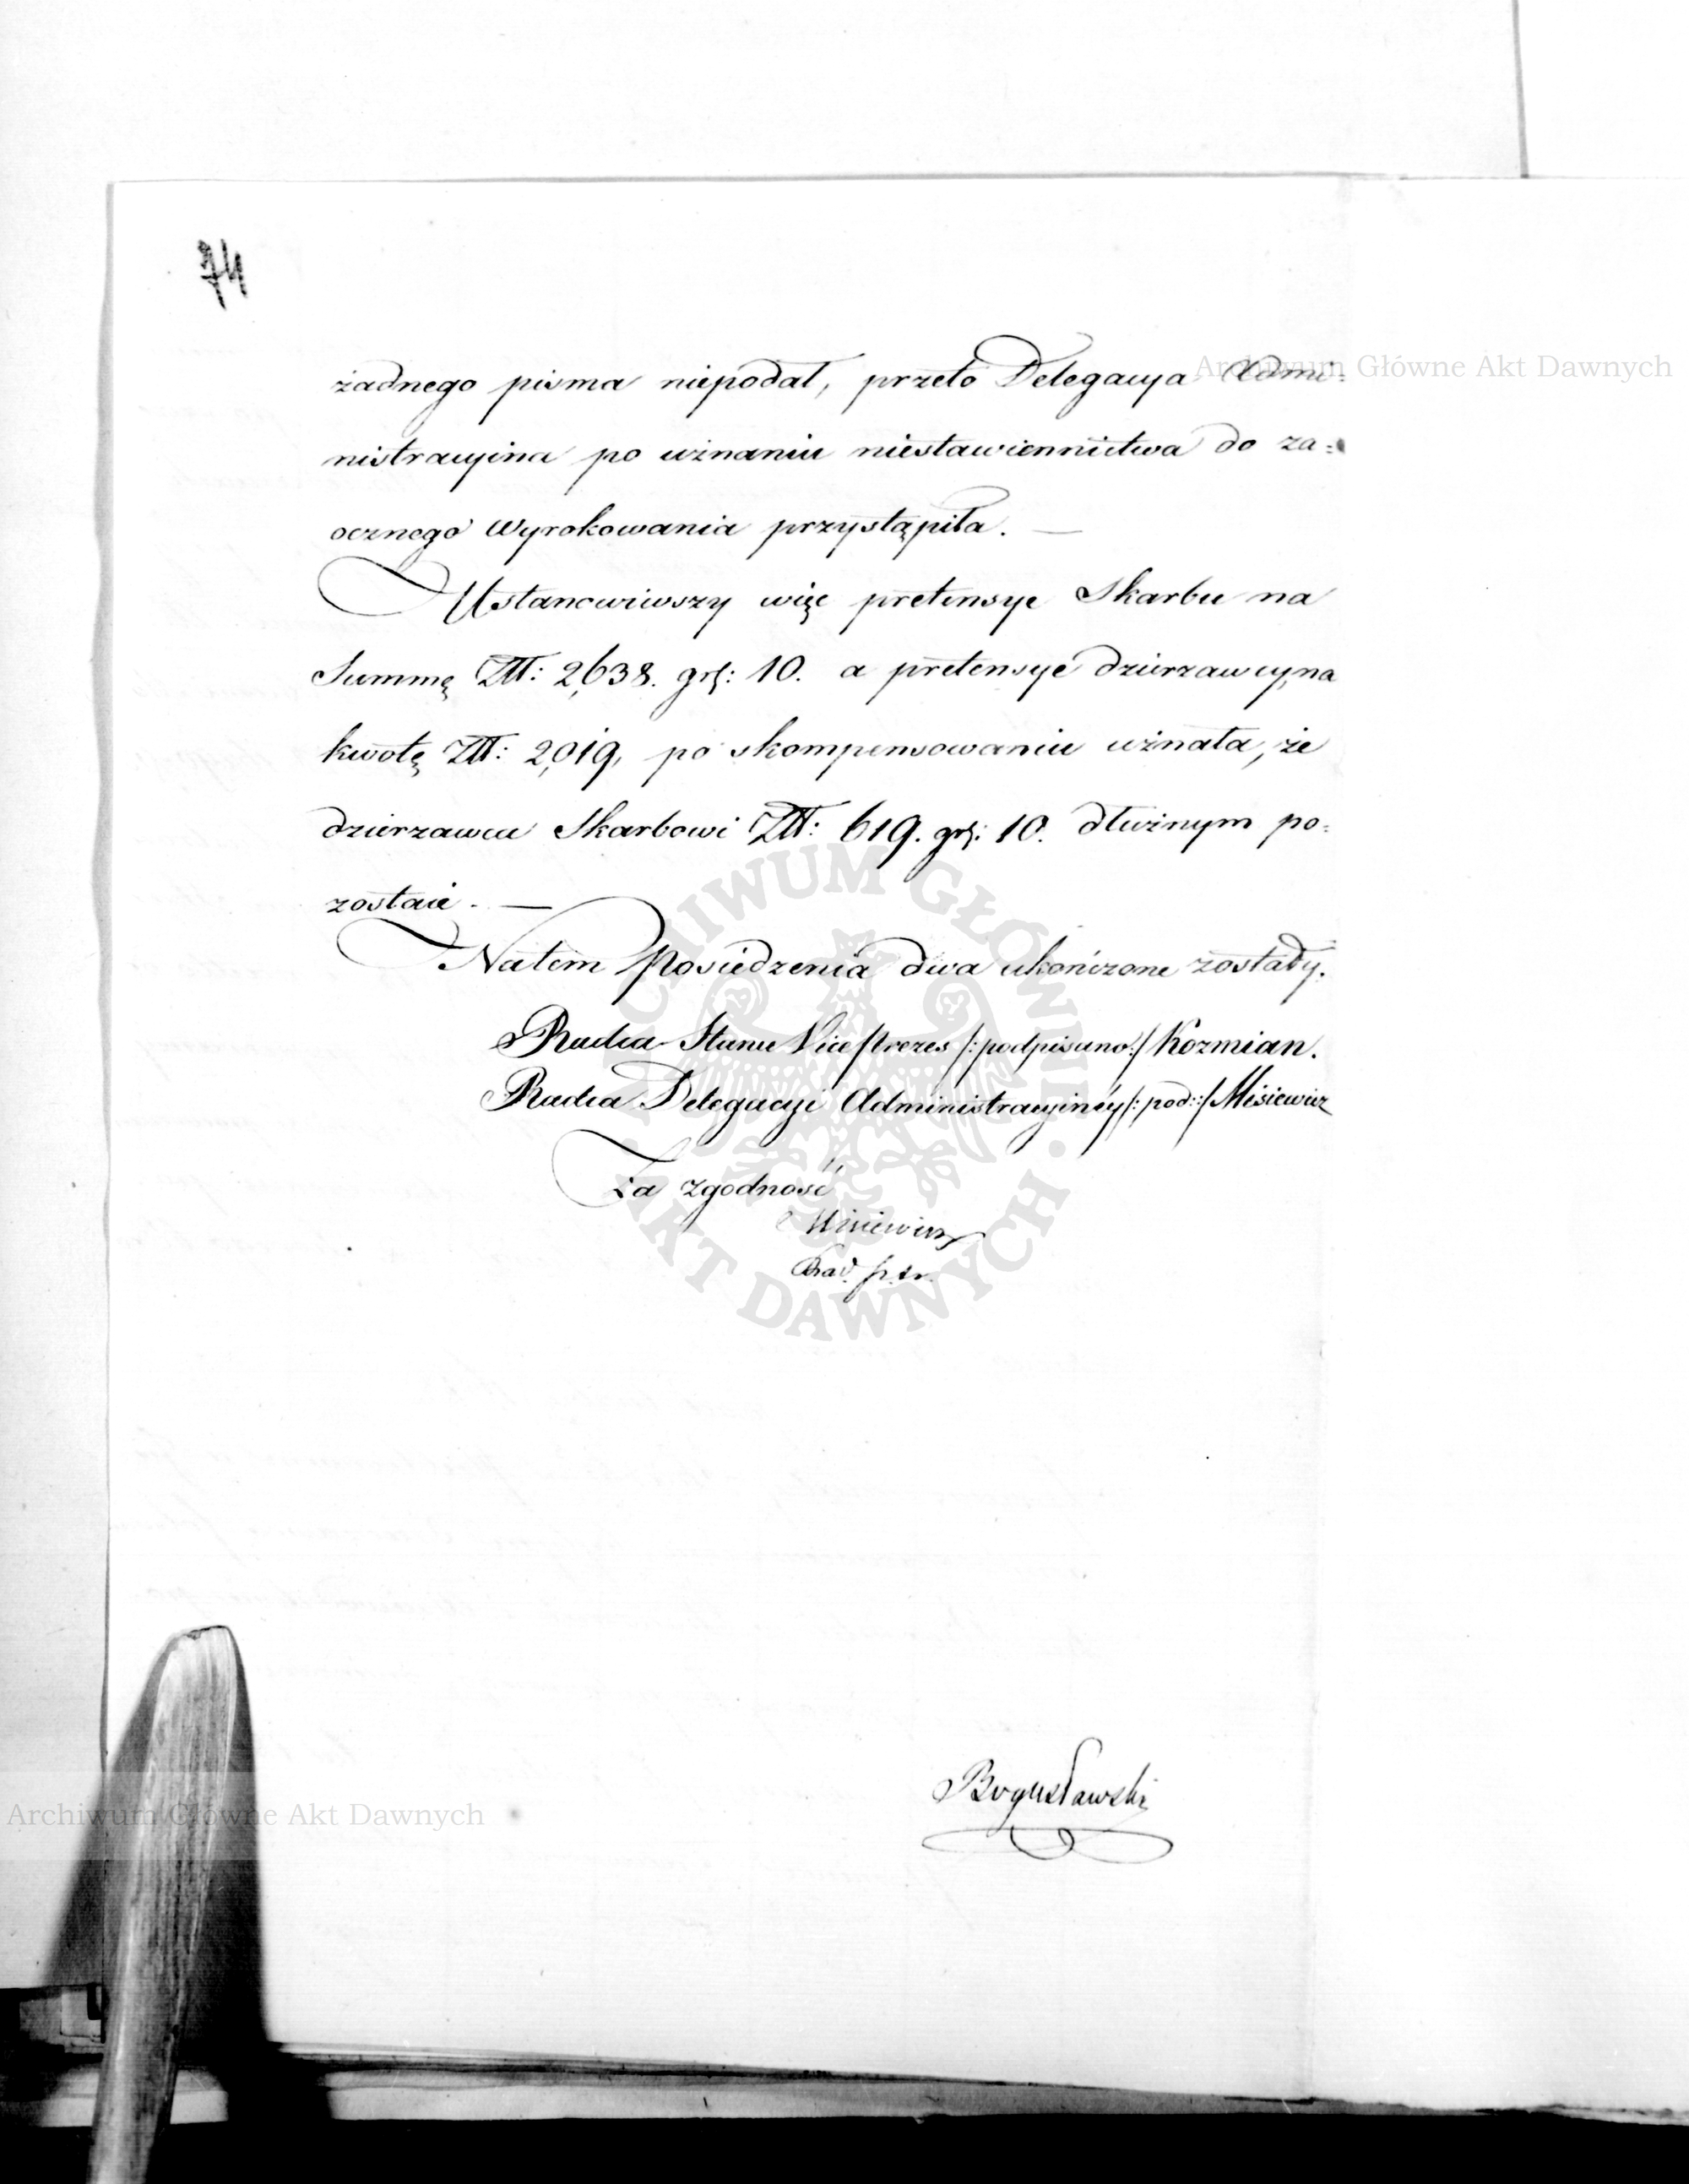 74
Archiwum Główne Akt Dawnych
żadnego pisma niepodał, przeto Delegacya Admi=
nistracyina po uznaniu niestawiennictwa do za=
ocznego Wyrokowania przystąpiła. —
Ustanowiwszy więc pretensye Skarbu na
Summę Złł: 2,638. gr: 10. a pretensye dzierzawcy, na
kwotę Złł: 2,019, po skompensowaniu uznała, że
dzierzawca Skarbowi Złł: 619. gr: 10. dłużnym po=
zostaie. —
Natem Posiedzenia dwa ukończone zostały.
Radca Stanu Vice Prezes /:podpisano:/ Kozmian.
Radca Delegacyi Administracyiney /:pod:/ Misiewicz
Za zgodność
Misiewicz
Rad.
ARCHIWUM GŁÓWNE AKT DAWNYCH
Bogusławski
Archiwum Główne Akt Dawnych